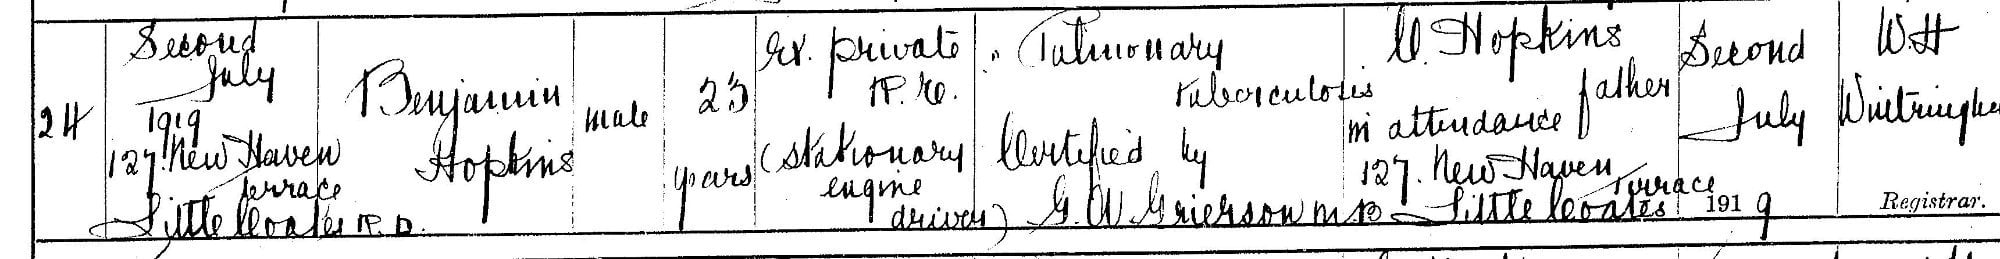 24
Second
July
1919
127. New Haven
Terrace
Little Coates R.D.
Benjamin
Hopkins
male
23
years
Ex. private
R.E.
(stationary
engine
driver)
Pulmonary
Tuberculosis
Certified by
G. W. Grierson M.B
C. Hopkins
father
in attendance
127. New Haven
Terrace
Little Coates
Second
July
1919
W H
Registrar.